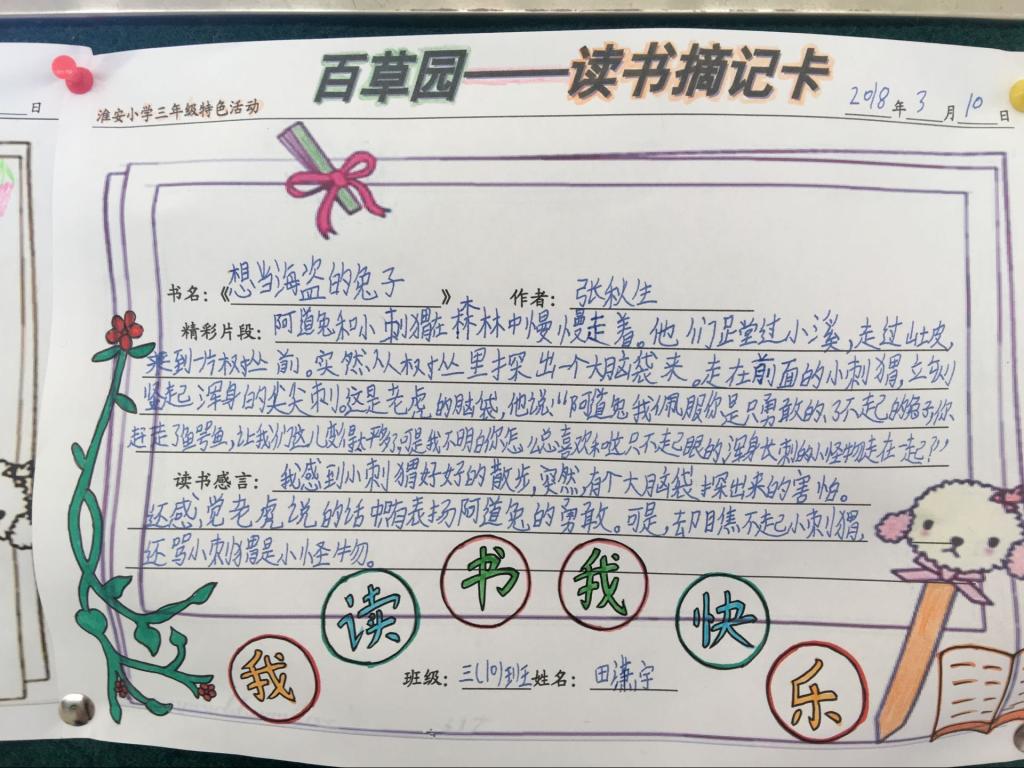 百草园——读书摘记卡
淮安小学三年级特色活动
2018年3月10日
日
书名：《想当海盗的兔子》 作者：张秋生
精彩片段：阿道兔和小刺猬在森林中慢慢走着。他们正堂过小溪，走过山坡，
来到片树丛前。突然从树丛里探出一个大脑袋来。走在前面的小刺猬，立刻
竖起浑身的尖尖刺。这是老虎的脑袋，他说："阿道兔我佩服你是只勇敢的、了不起的兔子，你
赶走了鱼鳄鱼，让我们这儿变得太平，可是我不明白你怎么总喜欢和这只不起眼的，浑身长刺的小怪物走在一起？"
读书感言：我感到小刺猬好好的散步，突然，有个大脑袋探出来的害怕。
还感觉老虎说的话中有表扬阿道兔的勇敢。可是，却瞧不起小刺猬，
还骂小刺猬是小怪物。
我读书我快乐
班级：三（10）班 姓名：田谦宇